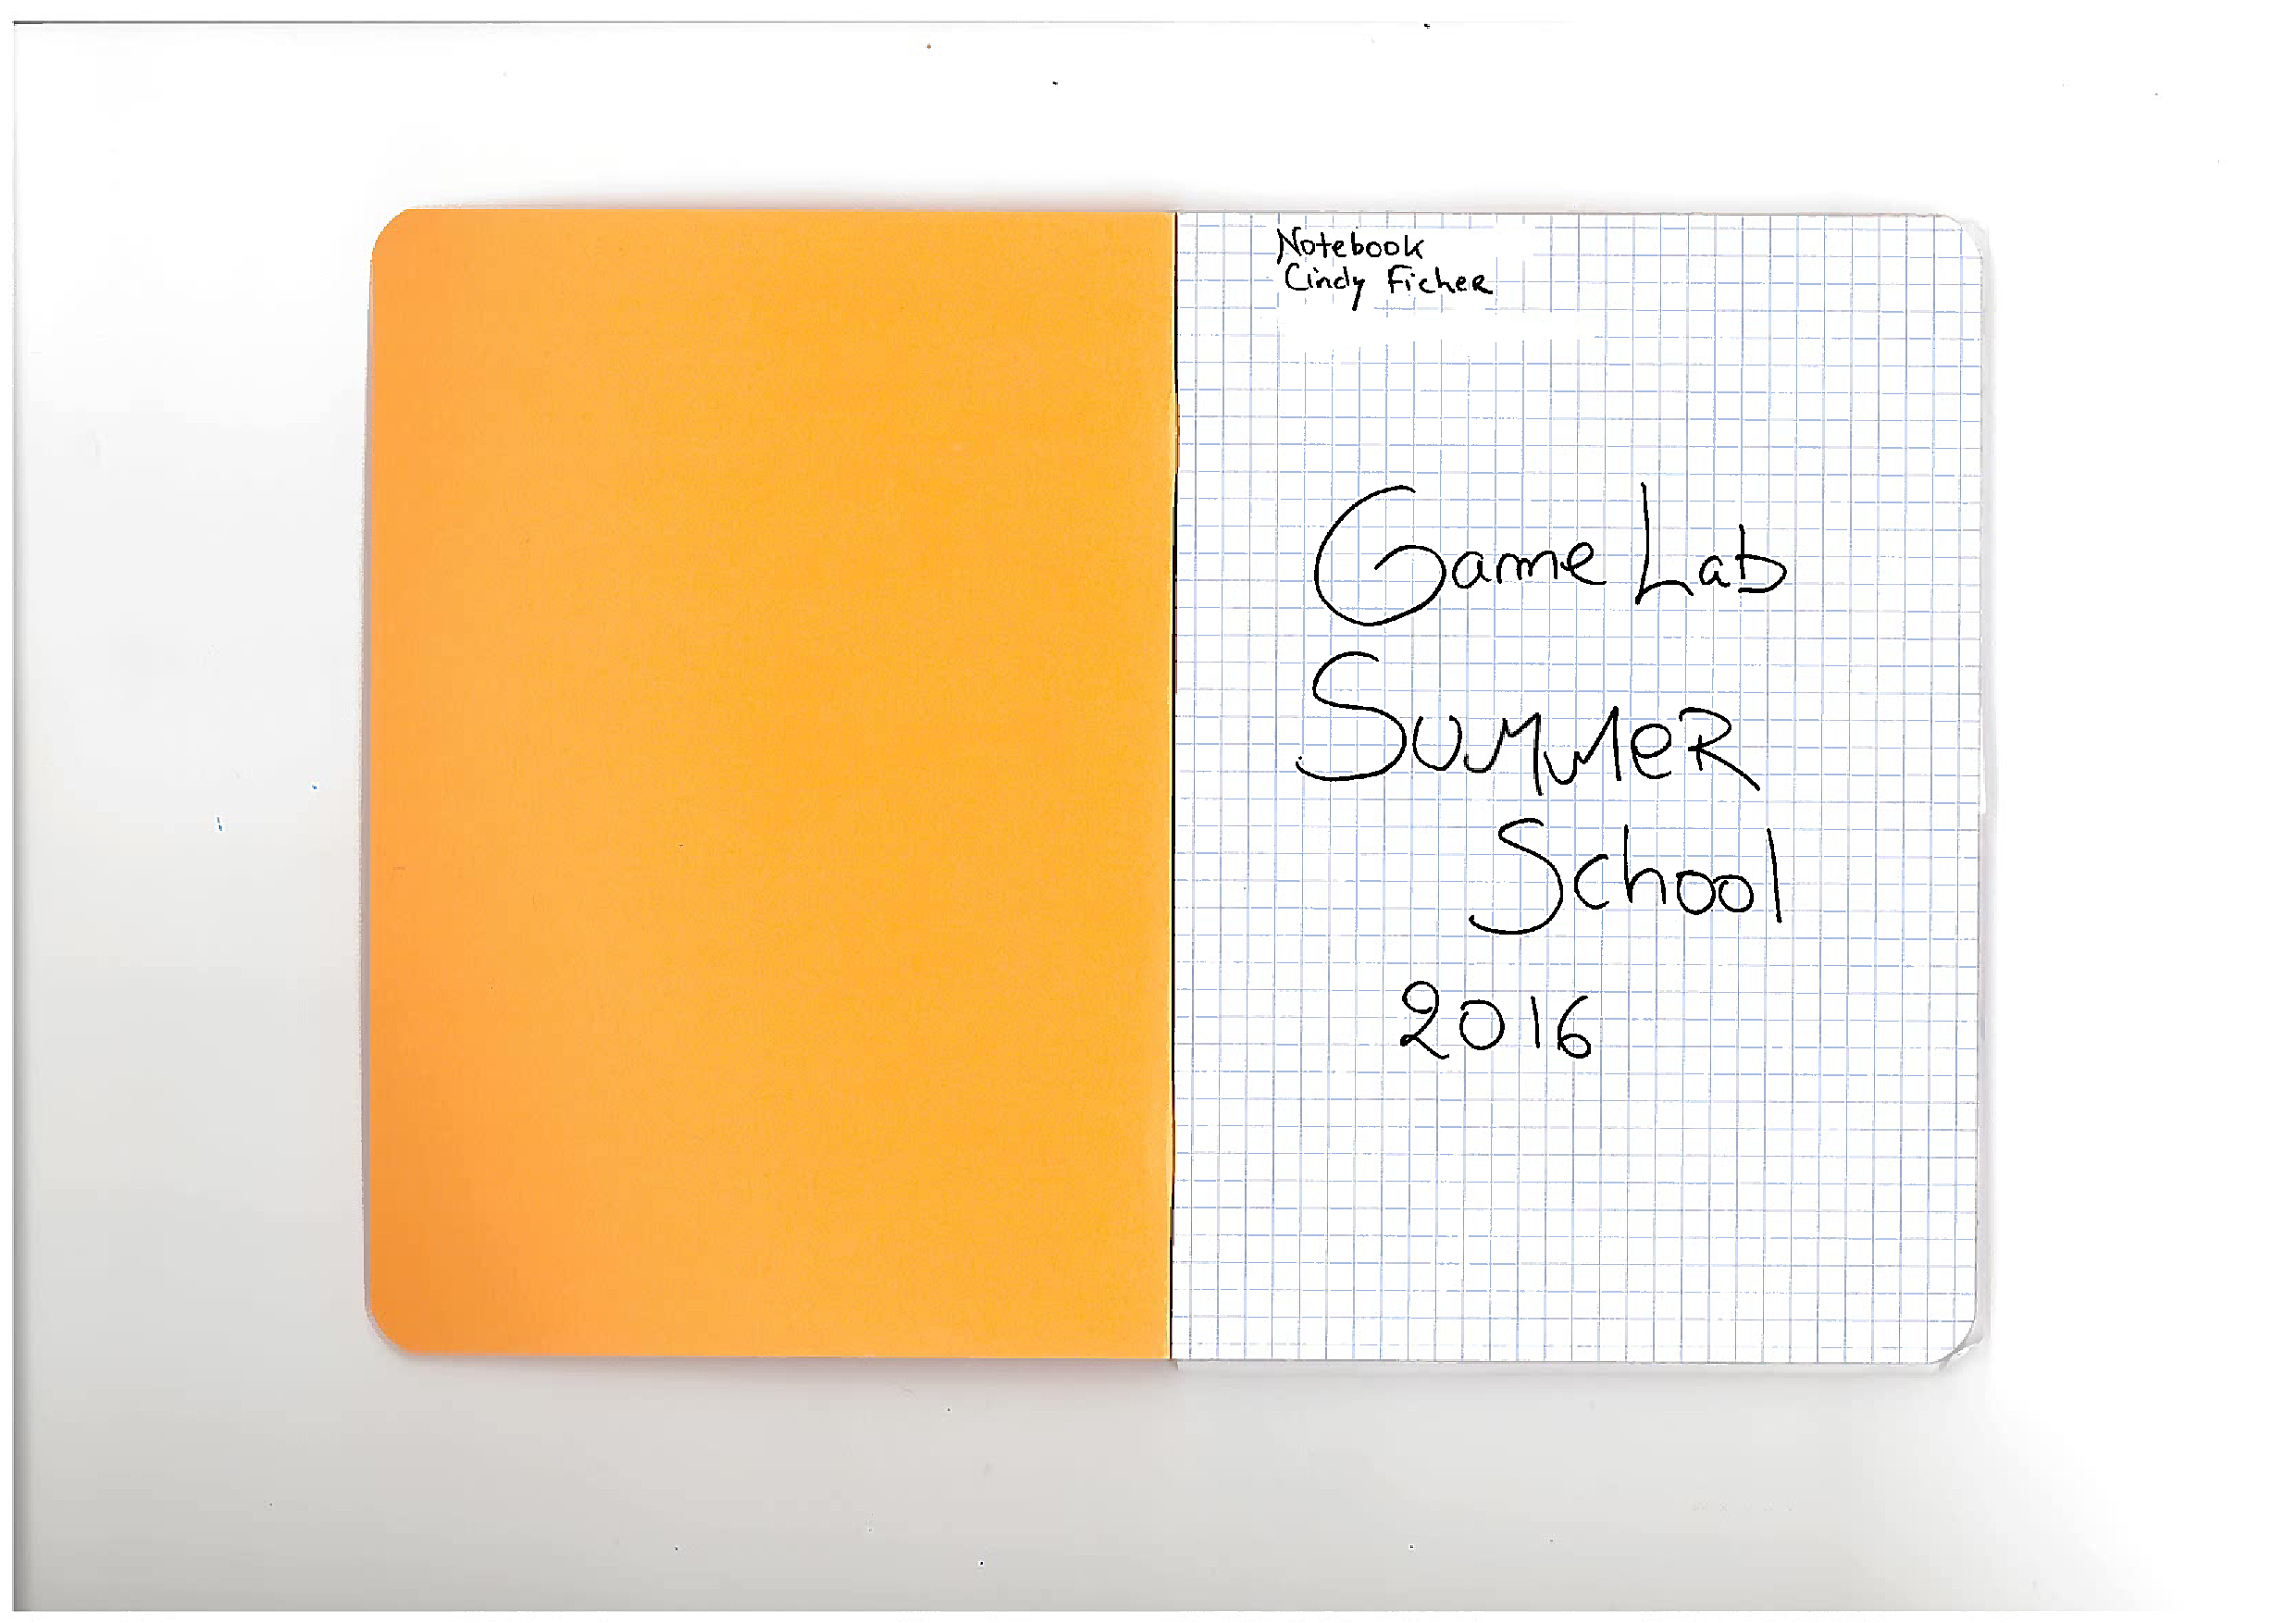 Notebook
Cindy Ficher
Game Lab
Summer
School
2016